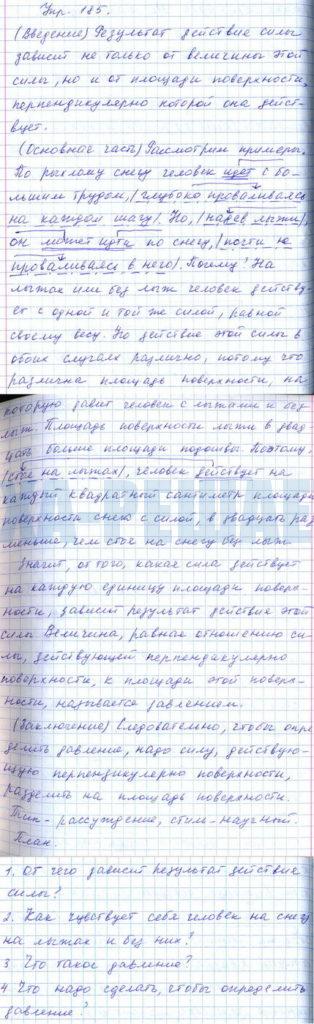 Упр. 185.
(Введение) Результат действие силы
зависит не только от величины этой
силы, но и от площади поверхности,
перпендикулярно которой она дейст-
вует.
(Основное часть) Рассмотрим примеры.
По рыхлому снегу человек идёт с бо-
льшим трудом, /глубоко проваливаясь
на каждом шагу/. Но, /надев лыжи/,
он может идти по снегу, /почти не
проваливаясь в него/. Почему? На
лыжах или без лыж человек действу-
ет с одной и той же силой, равной
своему весу. Но действие этой силы в
обоих случаях различно, потому что
различна площадь поверхности, на
которую давит человек с лыжами и без
лыж. Площадь поверхности лыжи в двад-
цать больше площади подошвы. Поэтому,
/стоя на лыжах/, человек действует на
каждый квадратный сантиметр площади
поверхности снега с силой, в двадцать раз
меньше, чем стоя на снегу без лыж
Значит, от того, какая сила действует
на каждую единицу площади поверх-
ности, зависит результат действия этой
силы. Величина, равная отношению си-
лы, действующей перпендикулярно
поверхности, к площади этой поверх-
ности, называется давлением.
(Заключение) Следовательно, чтобы опре-
делить давление, надо силу, действую-
щую перпендикулярно поверхности,
разделить на площадь поверхности.
Тип - рассуждение, стиль - научный.
План.
1. От чего зависит результат действия
силы?
2. Как чувствует себя человек на снегу
на лыжах и без них?
3 Что такое давление?
4 Что надо сделать, чтобы определить
давление?